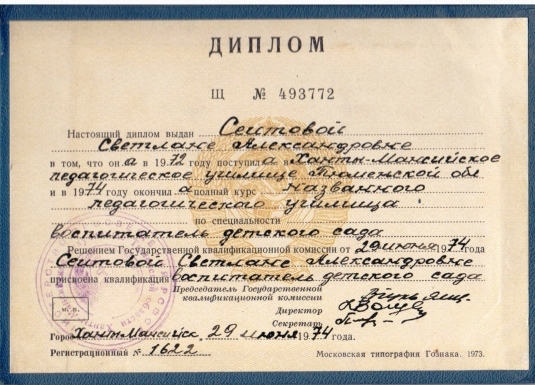 ДИПЛОМ
Щ № 493772
Настоящий диплом выдан Сеитовой
Светлане Александровне
в том, что она в 1972 году поступила в Ханты-Мансийское
педагогическое училище Тюменской обл.
и в 1974 году окончила полный курс названного
педагогического училища
по специальности
воспитатель детского сада
Решением Государственной квалификационной комиссии от 29 июня 1974 года
Сеитовой Светлане Александровне
присвоена квалификация воспитатель детского сада
Председатель Государственной
квалификационной комиссии
Директор
Секретарь
М. П.
Город Ханты-Мансийск, 29 июня 1974 года.
Регистрационный № 1622
Московская типография Гознака. 1973.